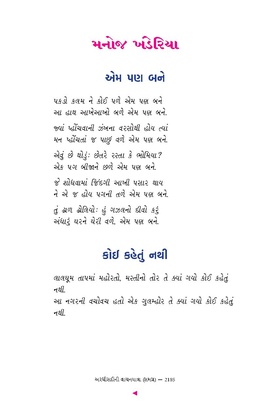 મનોજ ખંડેરિયા
એમ પણ બને
પકડો કલમ ને કોઈ પળે એમ પણ બને
આ હાથ આખેઆખો બળે એમ પણ બને.
જ્યાં પહોંચવાની ઝંખના વરસોથી હોય ત્યાં
મન પહોંચતાં જ પાછું વળે એમ પણ બને.
એવું છે થોડું : છેતરે રસ્તા કે ભોમિયા ?
એક પગ બીજાને છળે એમ પણ બને.
જે શોધવામાં જિંદગી આખી પસાર થાય
ને એ જ હોય પગની તળે એમ પણ બને.
તું ઢાળ ઢોલિયો : હું ગઝલનો દીવો કરું
અંધારું ઘરને ઘેરી વળે, એમ પણ બને.
કોઈ કહેતું નથી
લાલઘૂમ તાપમાં મહોરતો, મસ્તીનો તોર તે ક્યાં ગયો કોઈ કહેતું
નથી.
આ નગરની વચોવચ હતો એક ગુલમ્હોર તે ક્યાં ગયો કોઈ કહેતું
નથી.